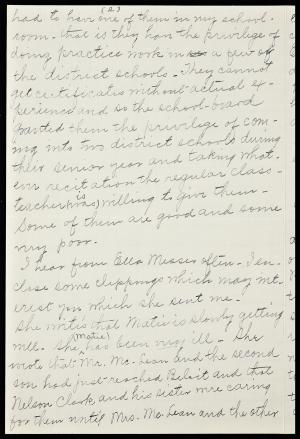 (2)
had to have one of them in my school-
room. That is they had the privilege of
doing practice work in a few of
the district schools. They cannot
get certificates without actual ex-
perience and so the school-board
granted them the privilege of com-
ing into two district schools during
their senior year and taking what-
ever recitation the regular class-
teacher (was) is willing to give them.
Some of them are good and some
very poor.
I hear from Ella Messer often. I en-
close some clippings which may int-
erest you which she sent me.
She writes that Matie is slowly getting
well. She (Matie) has been very ill. She
wrote that Mr. McLean and the second
son had just reached Beloit and that
Nelson Clark and his sister were caring
for them until Mrs. McLean and the other